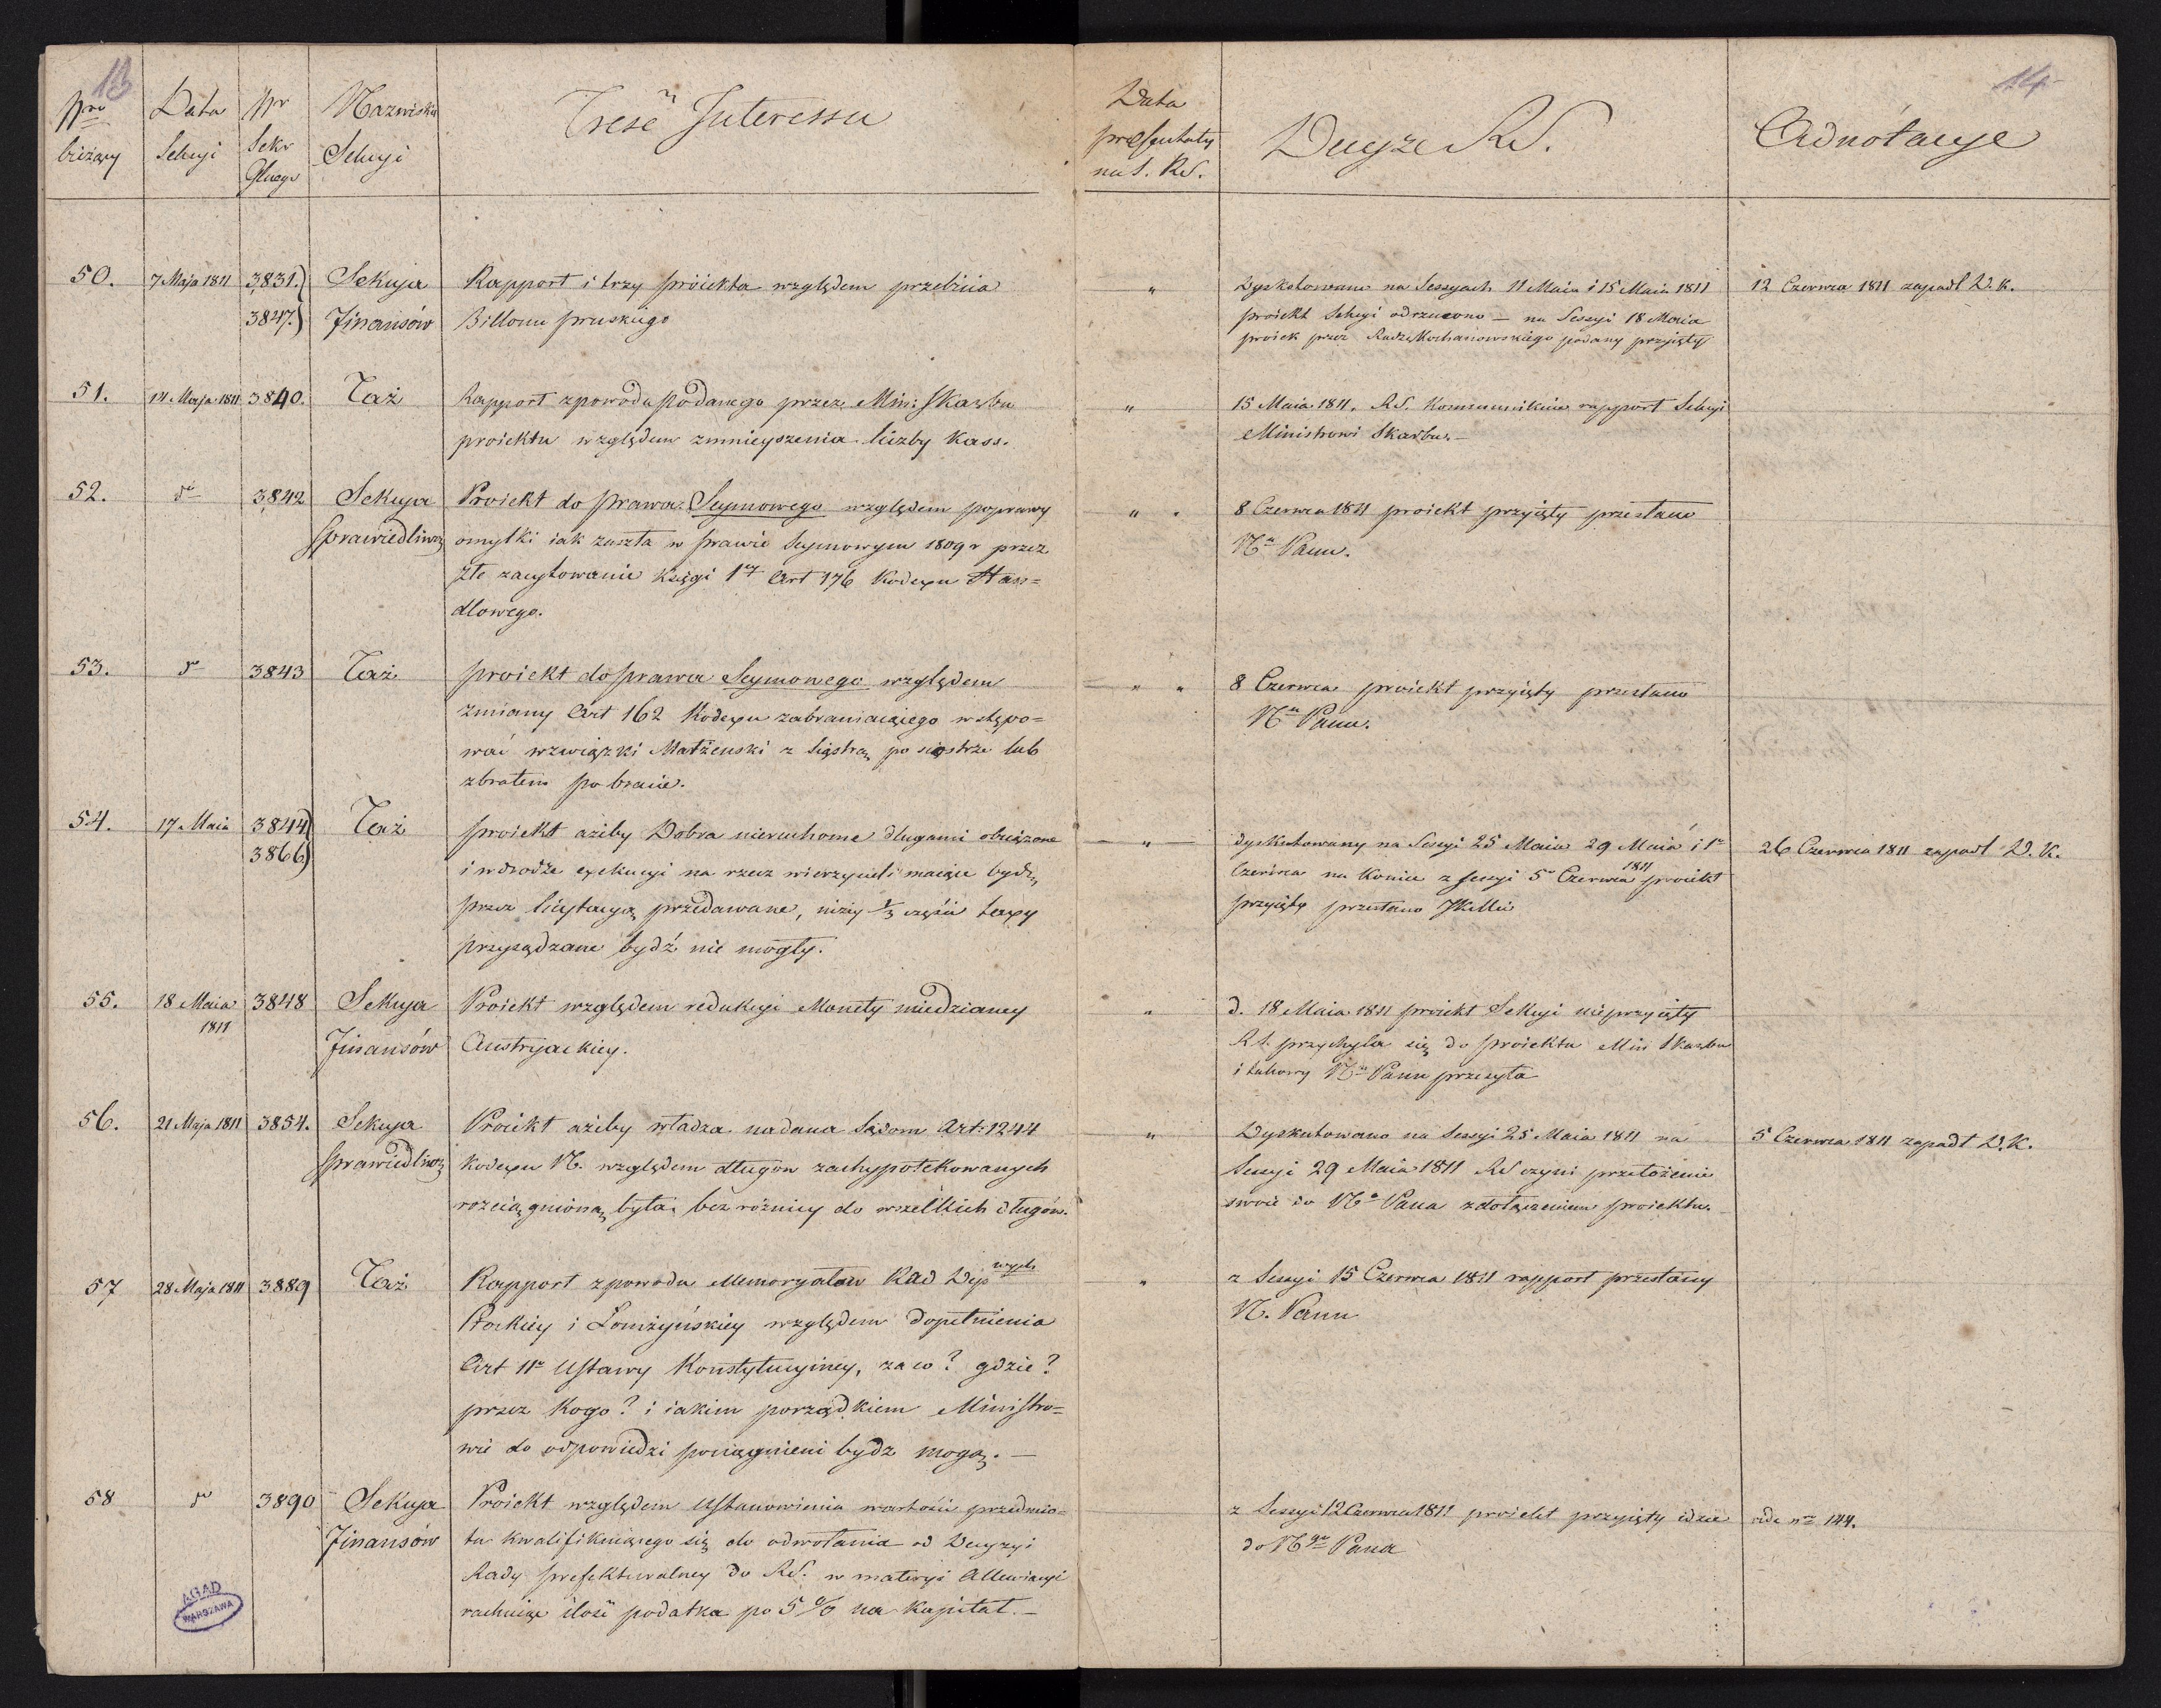 13
14
Nro bieżący
Data Sekcyi
Nr Sekr Głnego
Nazwisko Sekcyi
Treść Interessu
Data presentaty na S. RS.
Decyzye RS.
Adnotacye
50. 7 Maja 1811 3,831.) 3847.) Sekcya Finansów
Rapport i trzy proiekta względem przebicia
Billonu pruskiego
"
Dyskutowane na Sessyach 11 Maia i 15 Maia 1811
proiekt Sekcyi odrzucono — na Sessyi 18 Maia
proiek przez Radzę Kochanowskiego podany przyięty
12 Czerwca 1811 zapadł D. K.
51. 14 Maja 1811 3840. Taż
Rapport zpowodu podanego przez Min: Skarbu
proiektu względem zmnieyszenia liczby Kass.
"
15 Maia 1811. RS. Kommunikuie rapport Sekcyi
Ministrowi Skarbu.—
52. do 3,842 Sekcya Sprawiedliwoś
Proiekt do prawa Seymowego względem poprawy
omyłki iak zaszła w prawie Seymowym 1809 r przez
złe zacytowanie Księgi 1ey Art 176 Kodexu Han=
dlowego.
" "
8 Czerwca 1811 proiekt przyięty przesłano
No Panu.
53. do 3843 Taż
proiekt do prawa Seymowego względem
zmiany Art 162 Kodexu zabraniaiącego wstępo=
wać wzwiązki Małżeński z Siostrą po siostrze lub
zbratem po bracie.
" "
8 Czerwca proiekt przyięty przesłano
Nu Panu.
54. 17 Maia 3844) 3866) Taż
proiekt ażeby Dobra nieruchome długami obciążone
i wdrodze exekucyi na rzecz wierzycieli maiące bydź
przez licytacyą przedawane, niżey 2/3 części taxy
przysądzane bydź nie mogły.
"
dyskutowany na Sessyi 25 Maia 29 Maia i 1o
Czerwca na Koniec z sessyi 5o Czerwca 1811 proiekt
przyięty przesłano JKMci
26 Czerwca 1811 zapadł D. K.
55. 18 Maia 1811 3848 Sekcya Finansów
Proiekt względem redukcyi Monety miedzianey
Austryackiey.
"
d. 18 Maia 1811 proiekt Sekcyi nieprzyięty
RS. przychyla się do proiektu Min Skarbu
i takowy Nu Panu przesyła
56. 21 Maja 1811 3854. Sekcya Sprawiedliwoś
Proiekt ażeby władza nadana Sądom Art. 1244
Kodexu N. względem długow zachypotekowanych
rozciągnioną była bez różnicy do wszelkich długów.
"
Dyskutowano na Sessyi 25 Maia 1811 na
Sessyi 29 Maia 1811 RS czyni przełożenie
swoie do No Pana zdołączeniem proiektu.
5 Czerwca 1811 zapadł D.K.
57 28 Maja 1811 3889 Taż
Rapport zpowodu Memoryałow Rad Dep
Płockiey i Łomżyńskiey względem dopełnienia
Art 11o Ustawy Konstytucyiney, za co? gdzie?
przez Kogo? i iakim porządkiem Ministro=
wie do odpowiedzi pociągnieni bydz mogą.—
"
z Sessyi 15 Czerwca 1811 rapport przesłany
N. Panu
58 do 3890 Sekcya Finansów
Proiekt względem Ustanowienia wartości przedmio=
tu kwalifikuiącego się do odwołania od Decyzyi
Rady prefekturalney do RS. w materyi Allewiacyi
rachuiąc ilość podatka po 5 % na Kapitał.—
z Sessyi 12 Czerwca 1811 proiekt przyięty idzie
do Ngo Pana
vide no 144.
AGAD
WARSZAWA